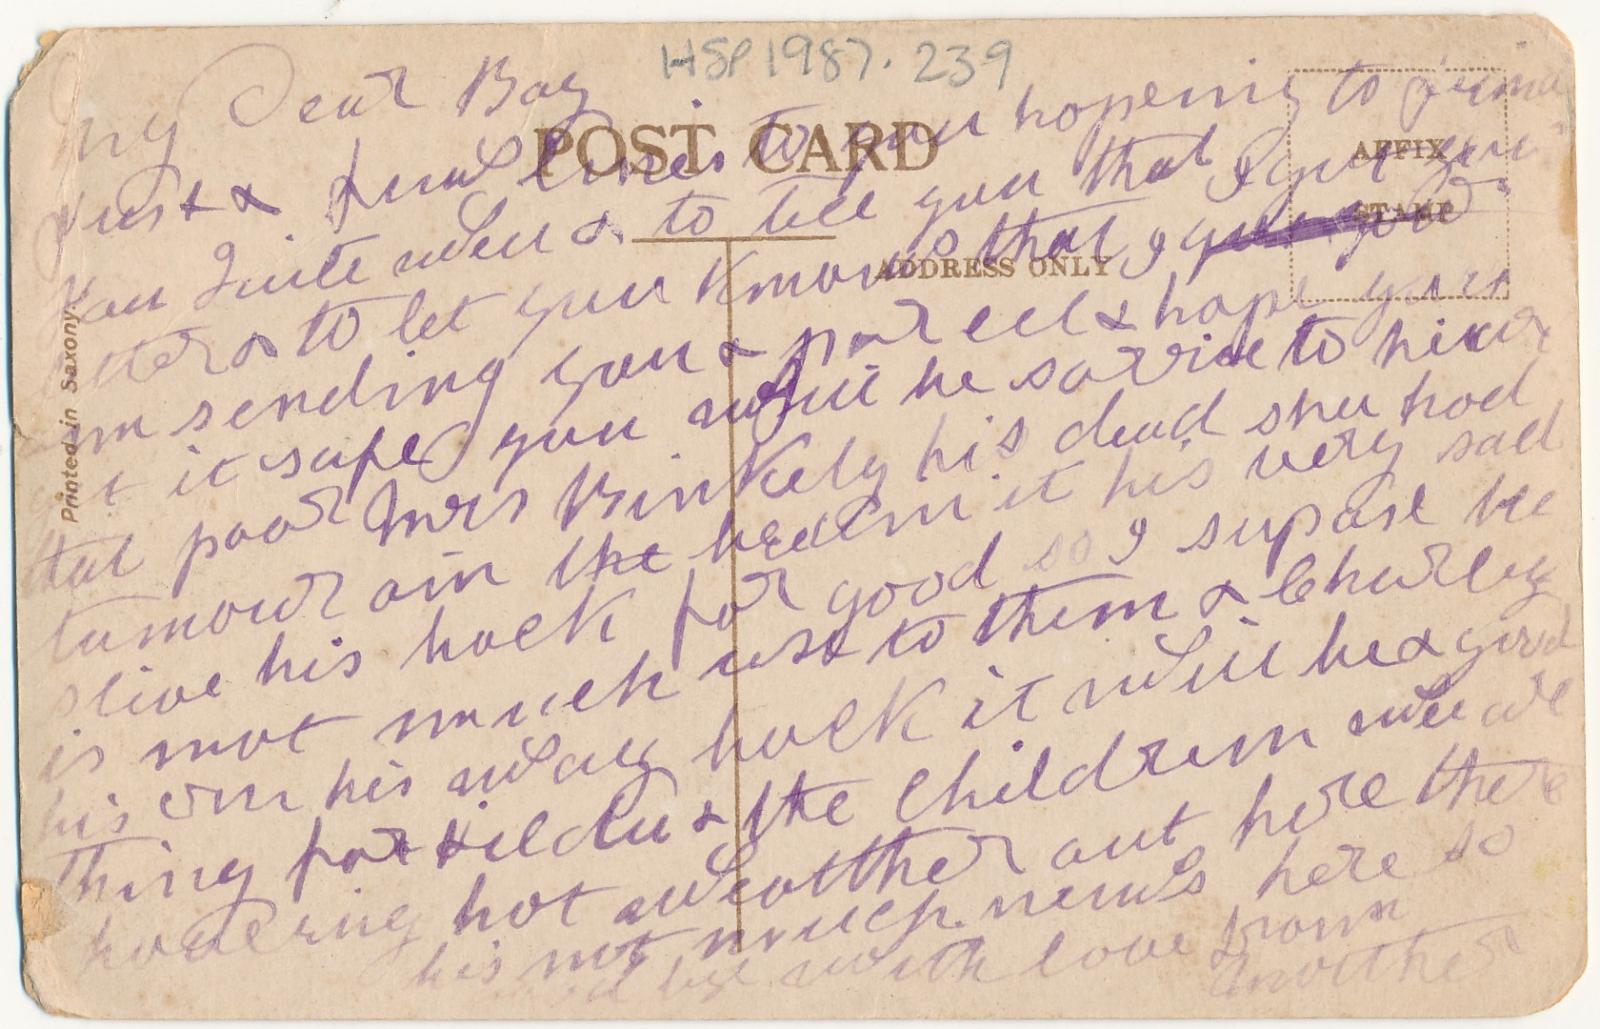 HSP 1987. 239
POST CARD
AFFIX
STAMP
ADDRESS ONLY
Printed in Saxony.
My Dear Boy
Just a few lines to you hopening to
you Quite well & to tell you that I got your
letter & to let you know that I
am sending you a parcel & hope you
get it safe you will be sorrie to hear
that poor Mrs Binkely his dead she had
tumour oin the it his very sad
Slive his back for good so I supose he
is not much use to them & Charley
his on his way back it will be a good
thing for & the Childrem wee are
haveing hot weatther out here there
his not much news here so
with love from
Mother